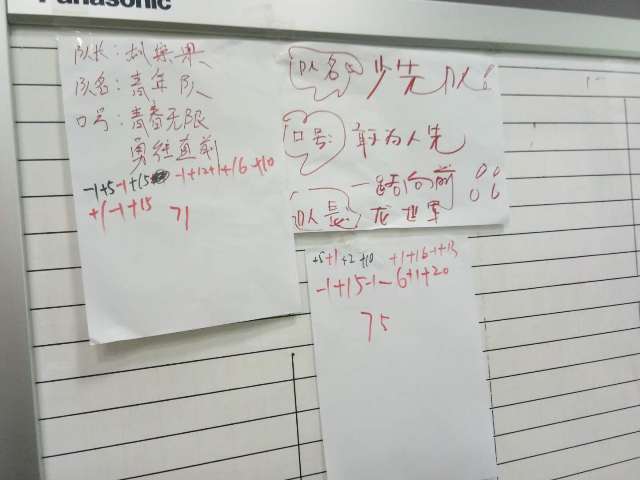 Panasonic
队长：
队名：青年队
口号：青春无限
勇往直前
-1+5-1+15 -1+12+1+16+10
+1-1+15 71
队名 少先队
口号： 敢为人先
一路向前
队长：龙世军
+5+1+2+10 +1+16-1+13
-1+15-1-6+1+20
75